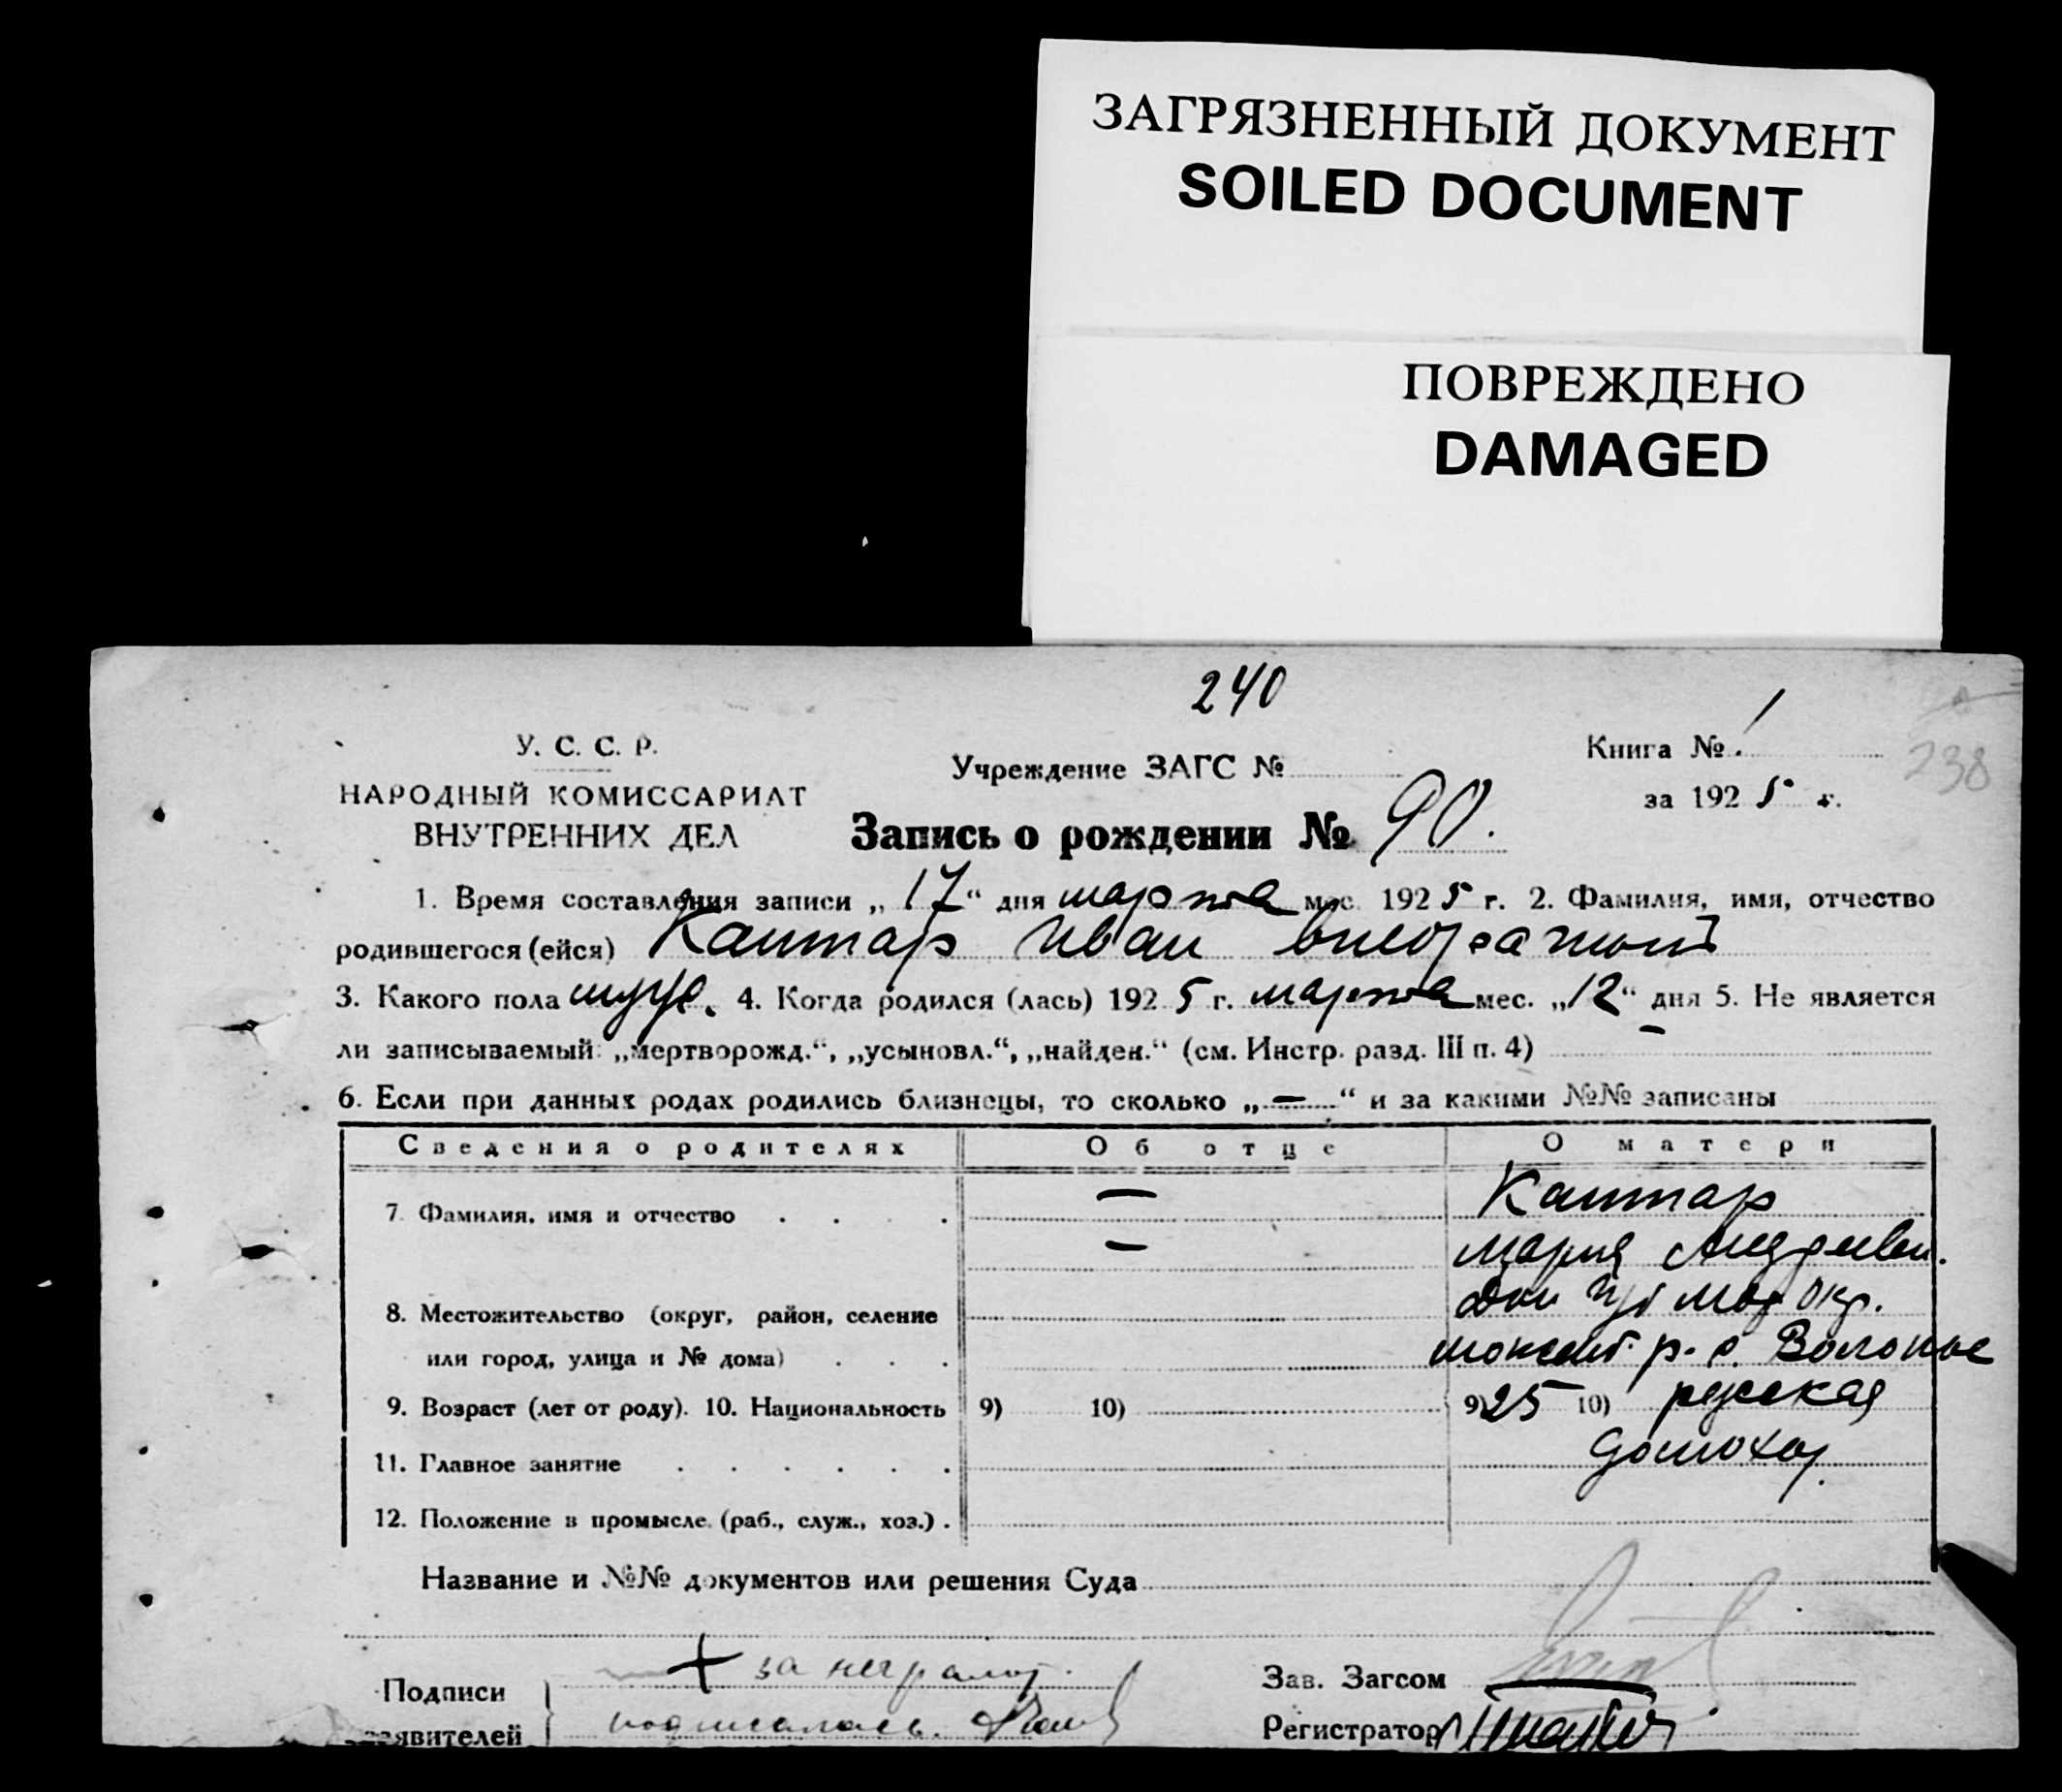 ЗАГРЯЗНЕННЫЙ ДОКУМЕНТ
SOILED DOCUMENT
ПОВРЕЖДЕНО
DAMAGED
240
У. С. С. Р.
НАРОДНЫЙ КОМИССАРИАТ
ВНУТРЕННИХ ДЕЛ
Учреждение ЗАГС №
Книга № 1
за 1925 г.
238
Запись о рождении № 90.
1. Время составления записи „17“ дня марта мес. 1925 г. 2. Фамилия, имя, отчество
родившегося (ейся) Каптар Иван внебрачный
3. Какого пола муж. 4. Когда родился (лась) 1925 г. марта мес. „12“ дня 5. Не является
ли записываемый: „мертворожд.“, „усыновл.“, „найден.“ (см. Инстр. разд. III п. 4) —
6. Если при данных родах родились близнецы, то сколько „—“ и за какими №№ записаны
Сведения о родителях Об отце О матери
7. Фамилия, имя и отчество . . . . — Каптар
— Мария Андреевн.
8. Местожительство (округ, район, селение
или город, улица и № дома) . . . р. с.
9. Возраст (лет от роду). 10. Национальность 9) 10) 9) 25 10) русская
11. Главное занятие . . . . . . домохоз.
12. Положение в промысле (раб., служ., хоз.) .
Название и №№ документов или решения Суда
Подписи + за неграмот. Зав. Загсом
заявителей подписалась. Регистратор